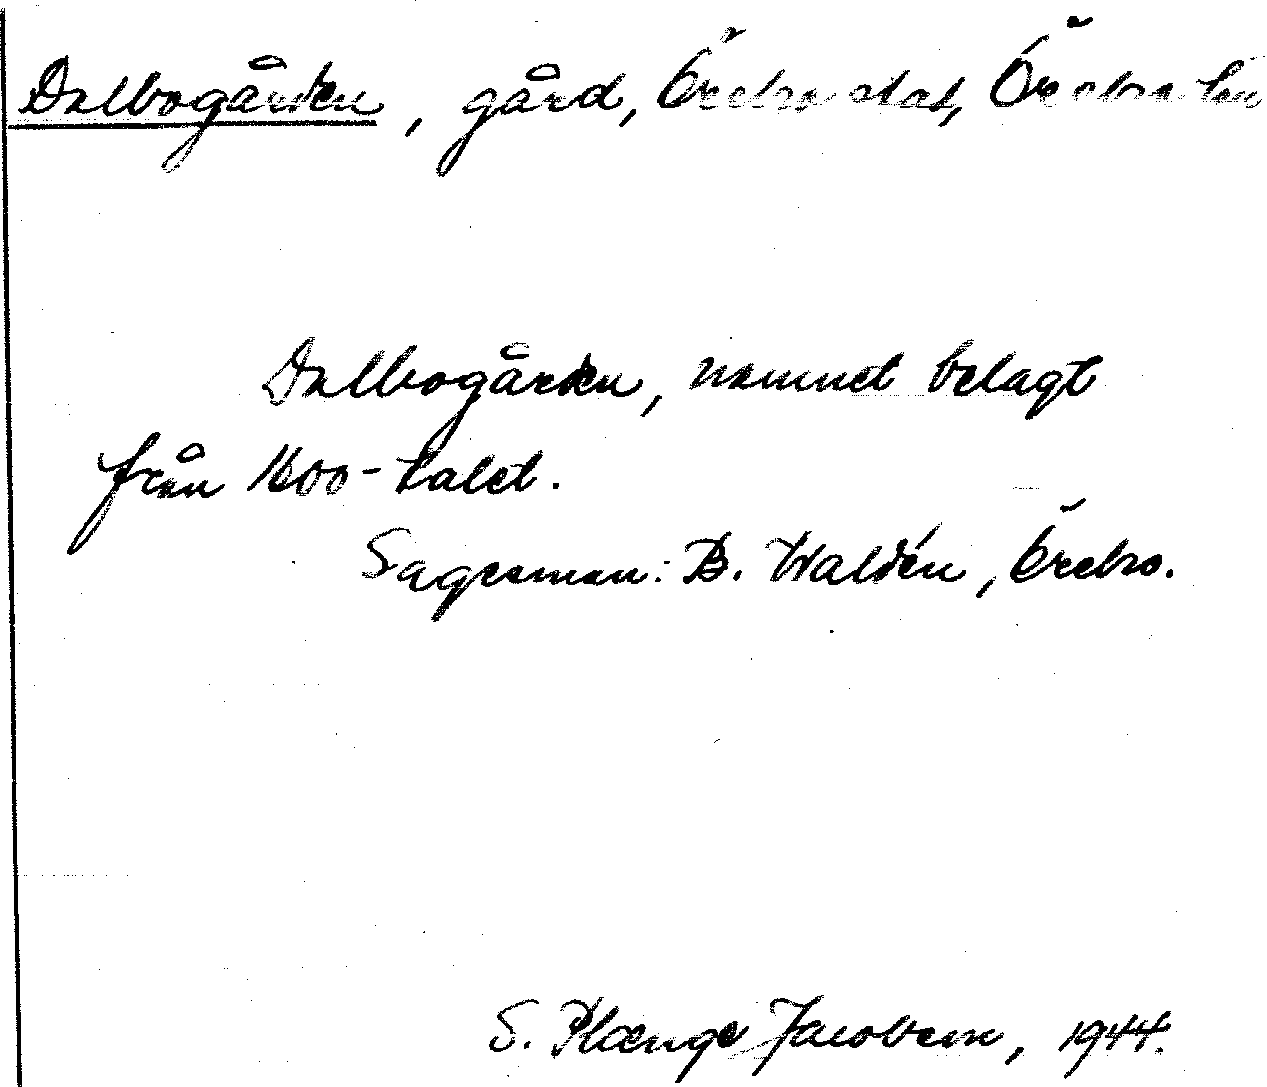 Dalbogården, gård, Örebro stad, Örebro län
Dalbogården, namnet belagt
från 1600-talet.
Sagesman: B. Waldén, Örebro.
S. Plænge Jacobsen, 1944.